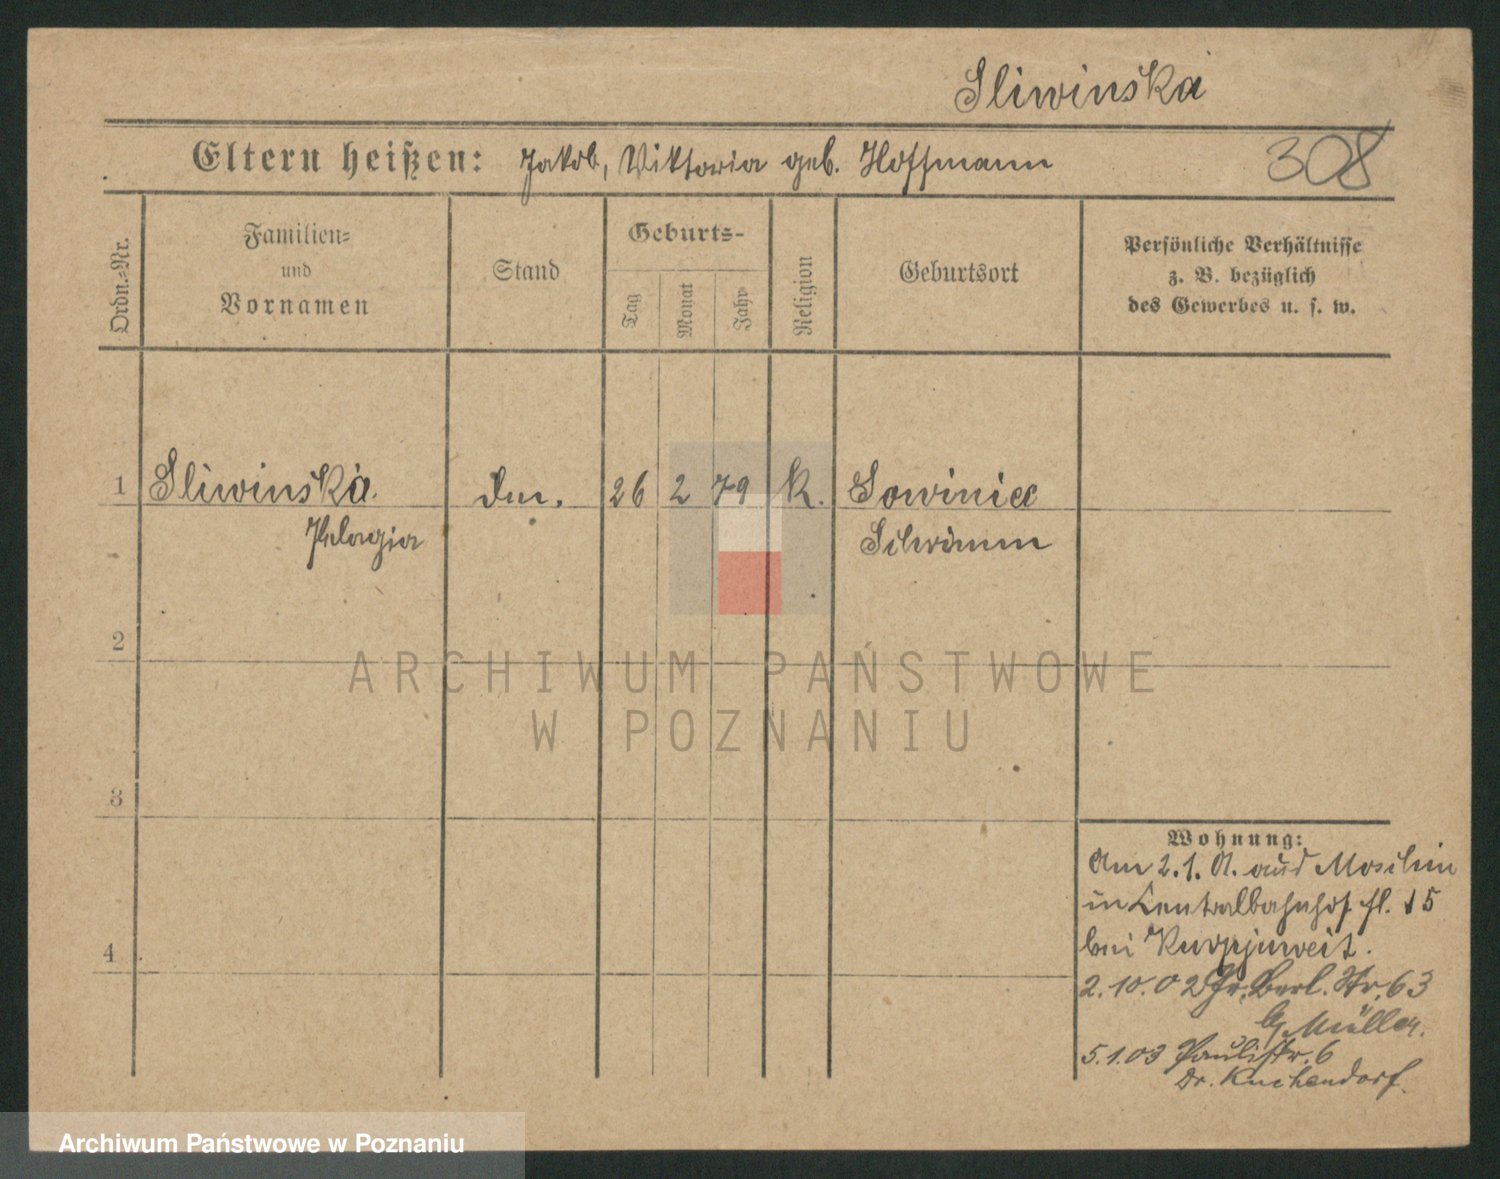 Sliwinska
Eltern heißen: Jakob, Viktoria geb. Hoffmann
308
Ordn.-Nr.
Familien-
und
Vornamen
Stand
Geburts-
Tag
Monat
Jahr
Religion
Geburtsort
Persönliche Verhältnisse
z. B. bezüglich
des Gewerbes u. s. w.
1 Sliwinska 26 2 79 k. Sowiniec
Pelagia Schrimm
2
3
4
Wohnung:
Am 2.1. aus Moschin
in Centralbahnhof 15
bei
2.10.02 Gr. Berl. Str. 63
Müller.
5.1.03 Paulistr. 6
Dr. Kuchendorf
ARCHIWUM PAŃSTWOWE
W POZNANIU
Archiwum Państwowe w Poznaniu